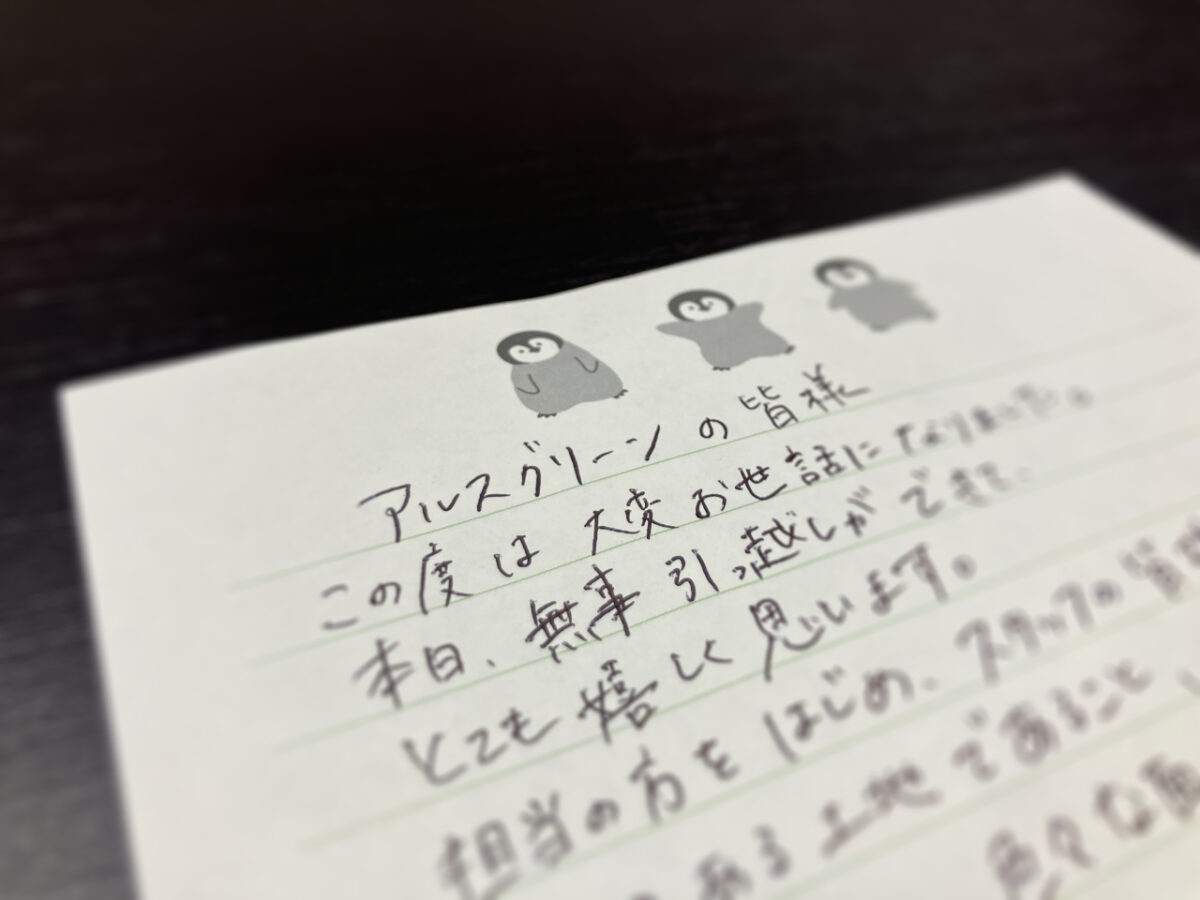 アルスグリーンの皆様
この度は大変お世話になりました。
本日、無事引っ越しができて、
とても嬉しく思います。
担当の方をはじめ、スタッフの皆
ある土地であること
色々な面